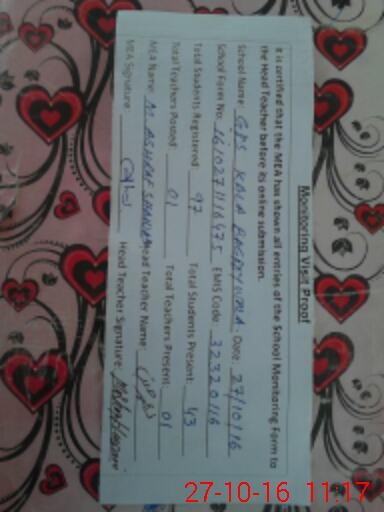 Monitoring Visit Proof
It is certified that the MEA has shown all entries of the School Monitoring Form to
the Head Teacher before its online submission.
School Name: GPS KALA Date: 27/10/16
School Form No: EMIS Code: 32320116
Total Students Registered: 97 Total Students Present: 43
Total Teachers Posted: 01 Total Teachers Present: 01
MEA Name: M. ASHRAF Head Teacher Name:
MEA Signature: Head Teacher Signature:
27-10-16 11:17